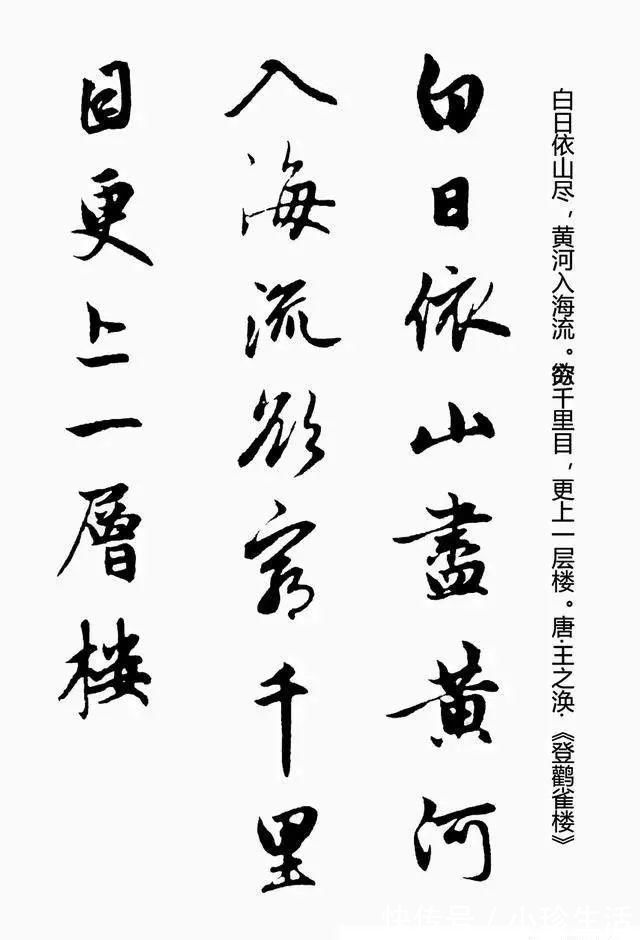 白日依山尽，黄河入海流。欲穷千里目，更上一层楼。唐·王之涣·《登鹳雀楼》
白日依山盡黄河
入海流欲窮千里
目更上一層楼
快传号/小珍生活